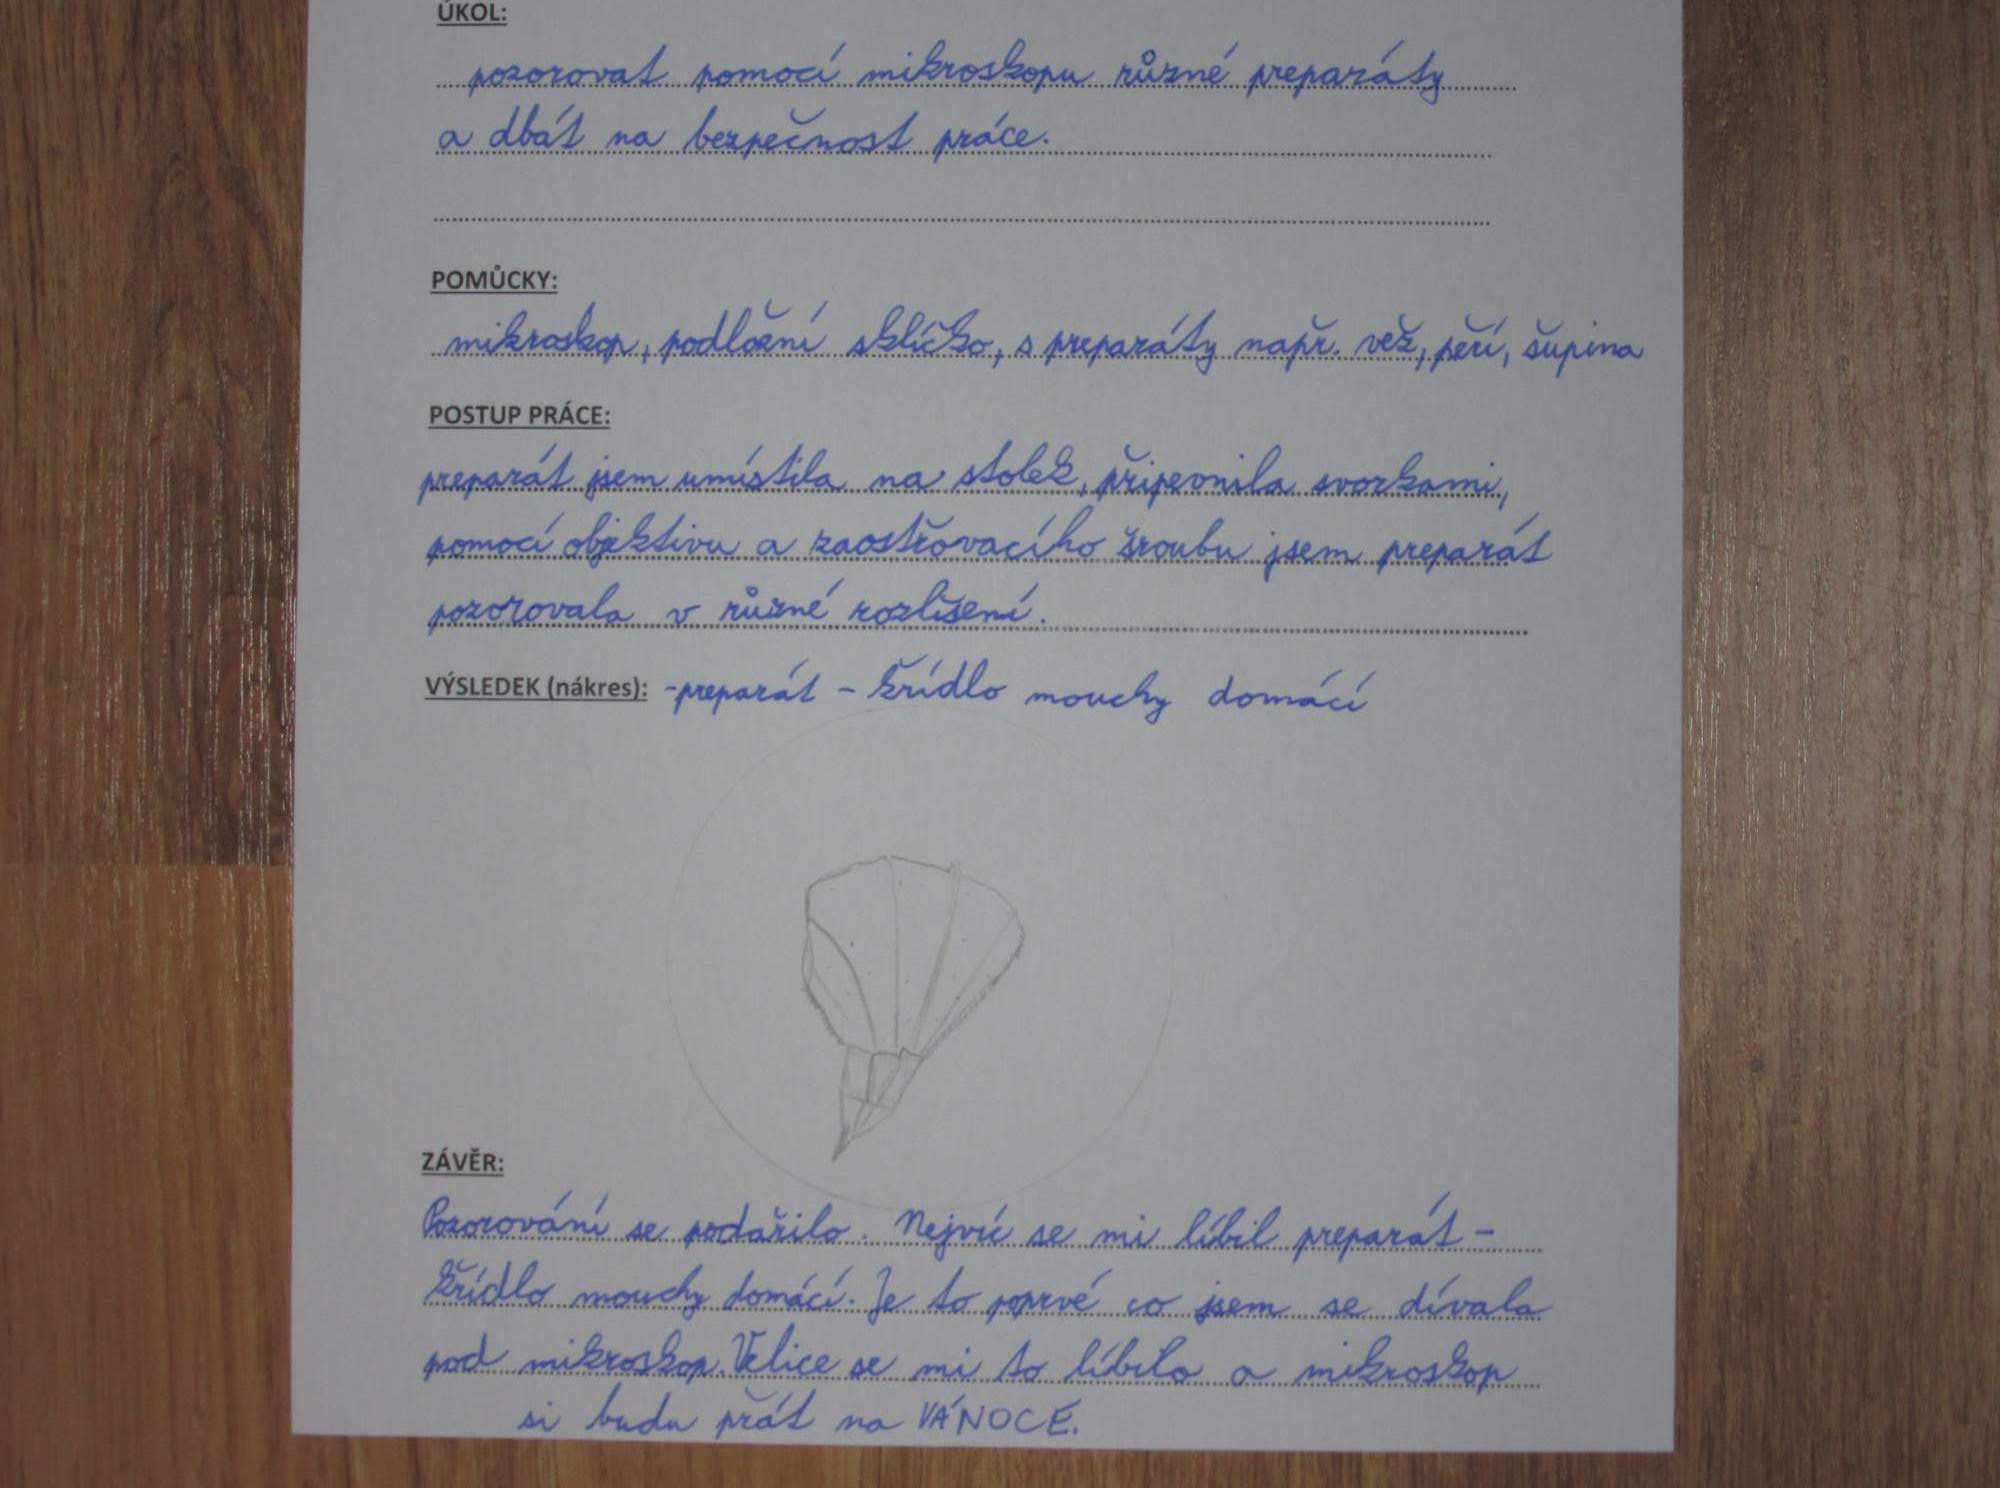 ÚKOL:
pozorovat pomocí mikroskopu různé preparáty
a dbát na bezpečnost práce.
POMŮCKY:
mikroskop, podložní sklíčko, s preparáty např. věž, peří, šupina
POSTUP PRÁCE:
preparát jsem umístila na stolek, připevnila svorkami,
pomocí objektivu a zaostřovacího šroubu jsem preparát
pozorovala v různé rozlišení.
VÝSLEDEK (nákres): -preparát - křídlo mouchy domácí
ZÁVĚR:
Pozorování se podařilo. Nejvíc se mi líbil preparát -
křídlo mouchy domácí. Je to poprvé co jsem se dívala
pod mikroskop. Velice se mi to líbilo a mikroskop
si budu přát na VÁNOCE.